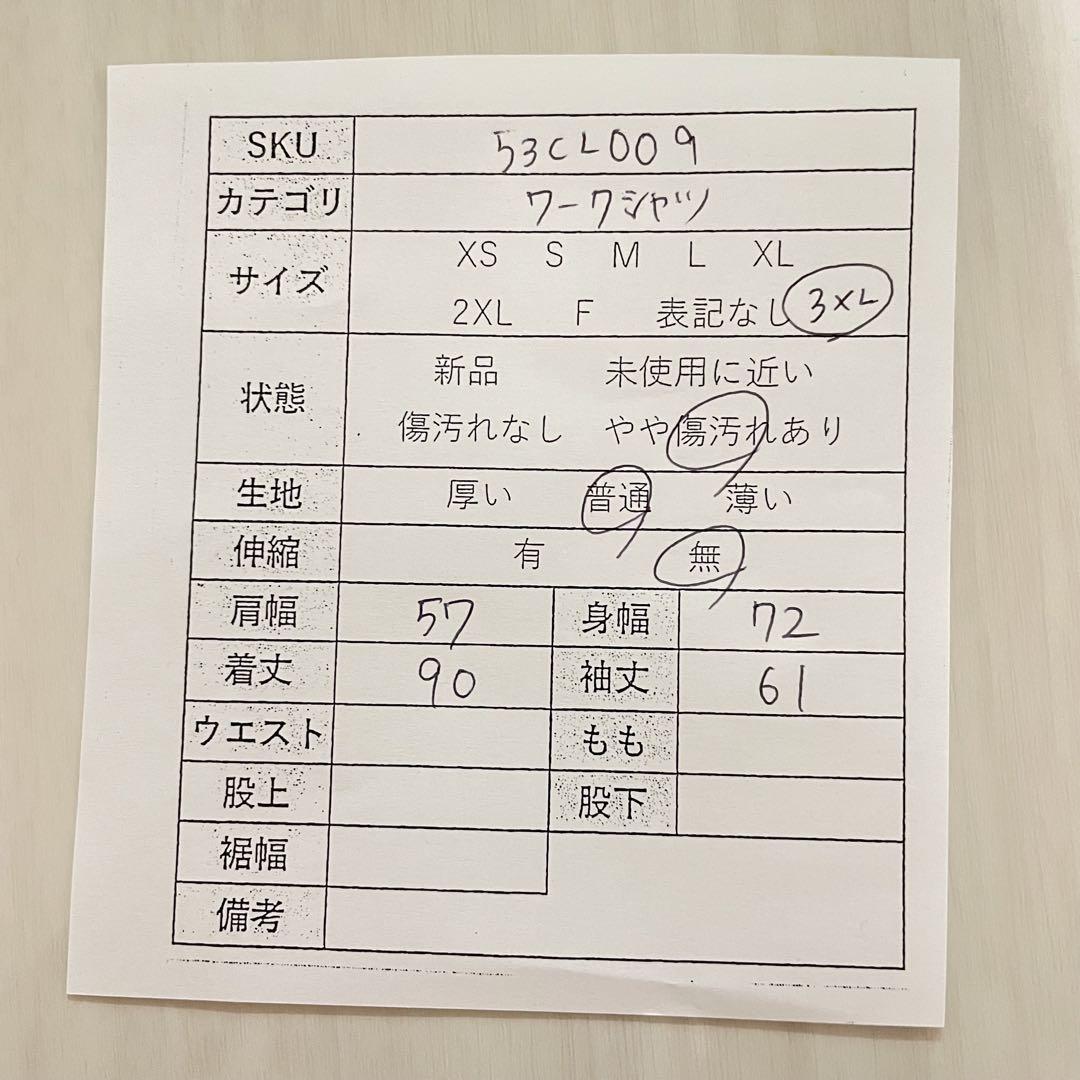 SKU 53CL009
カテゴリ ワークシャツ
サイズ XS S M L XL
2XL F 表記なし 3XL
状態 新品 未使用に近い
傷汚れなし やや傷汚れあり
生地 厚い 普通 薄い
伸縮 有 無
肩幅 57 身幅 72
着丈 90 袖丈 61
ウエスト もも
股上 股下
裾幅
備考